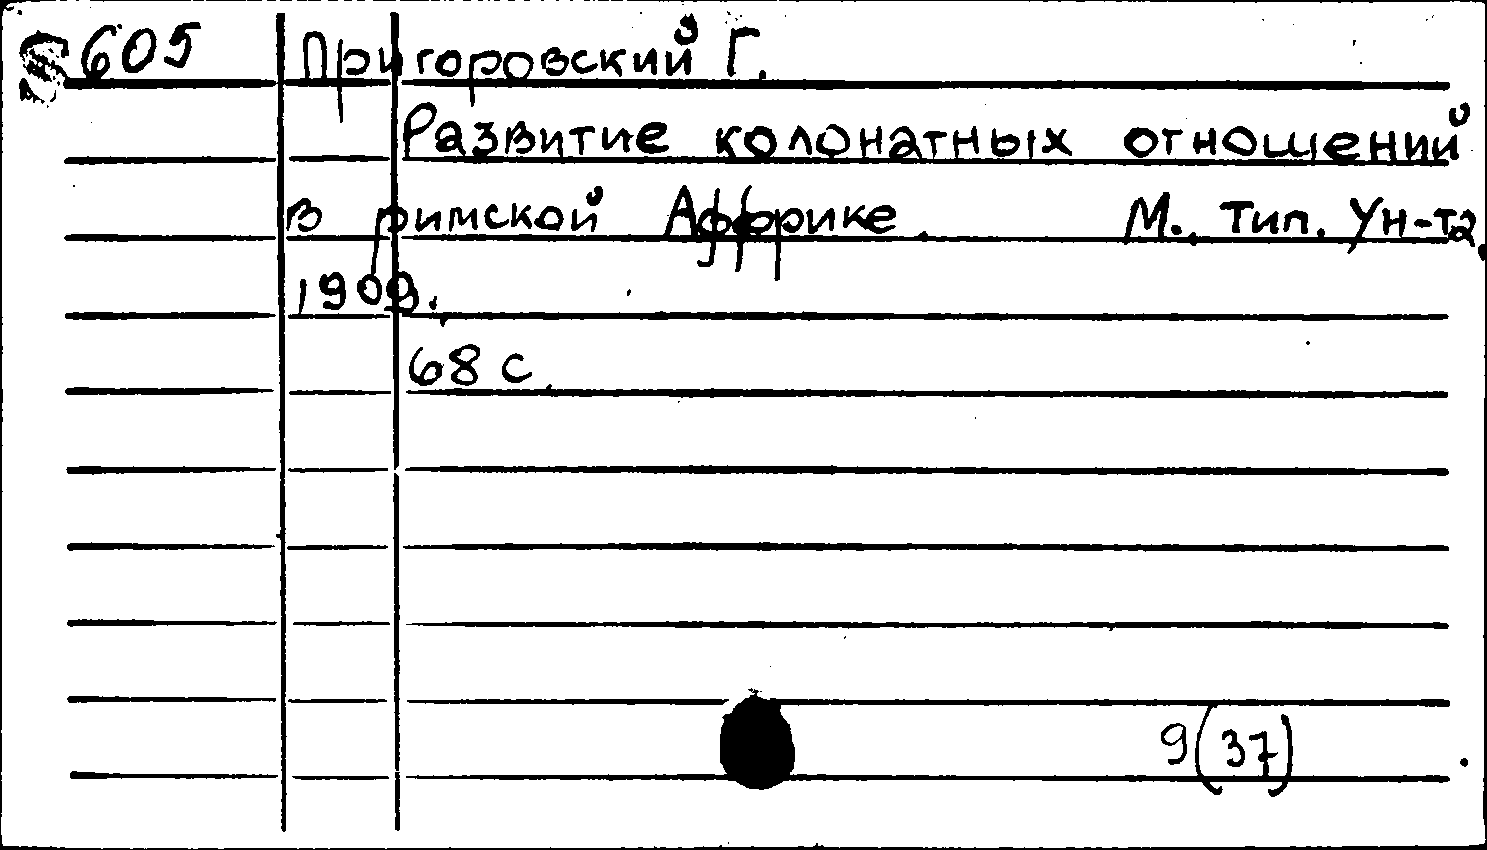 605 Пригоровский Г.
Развитие колонатных отношений
в римской Аффрике. М., Тип. Ун-та,
1909.,
68 с.
9(37)